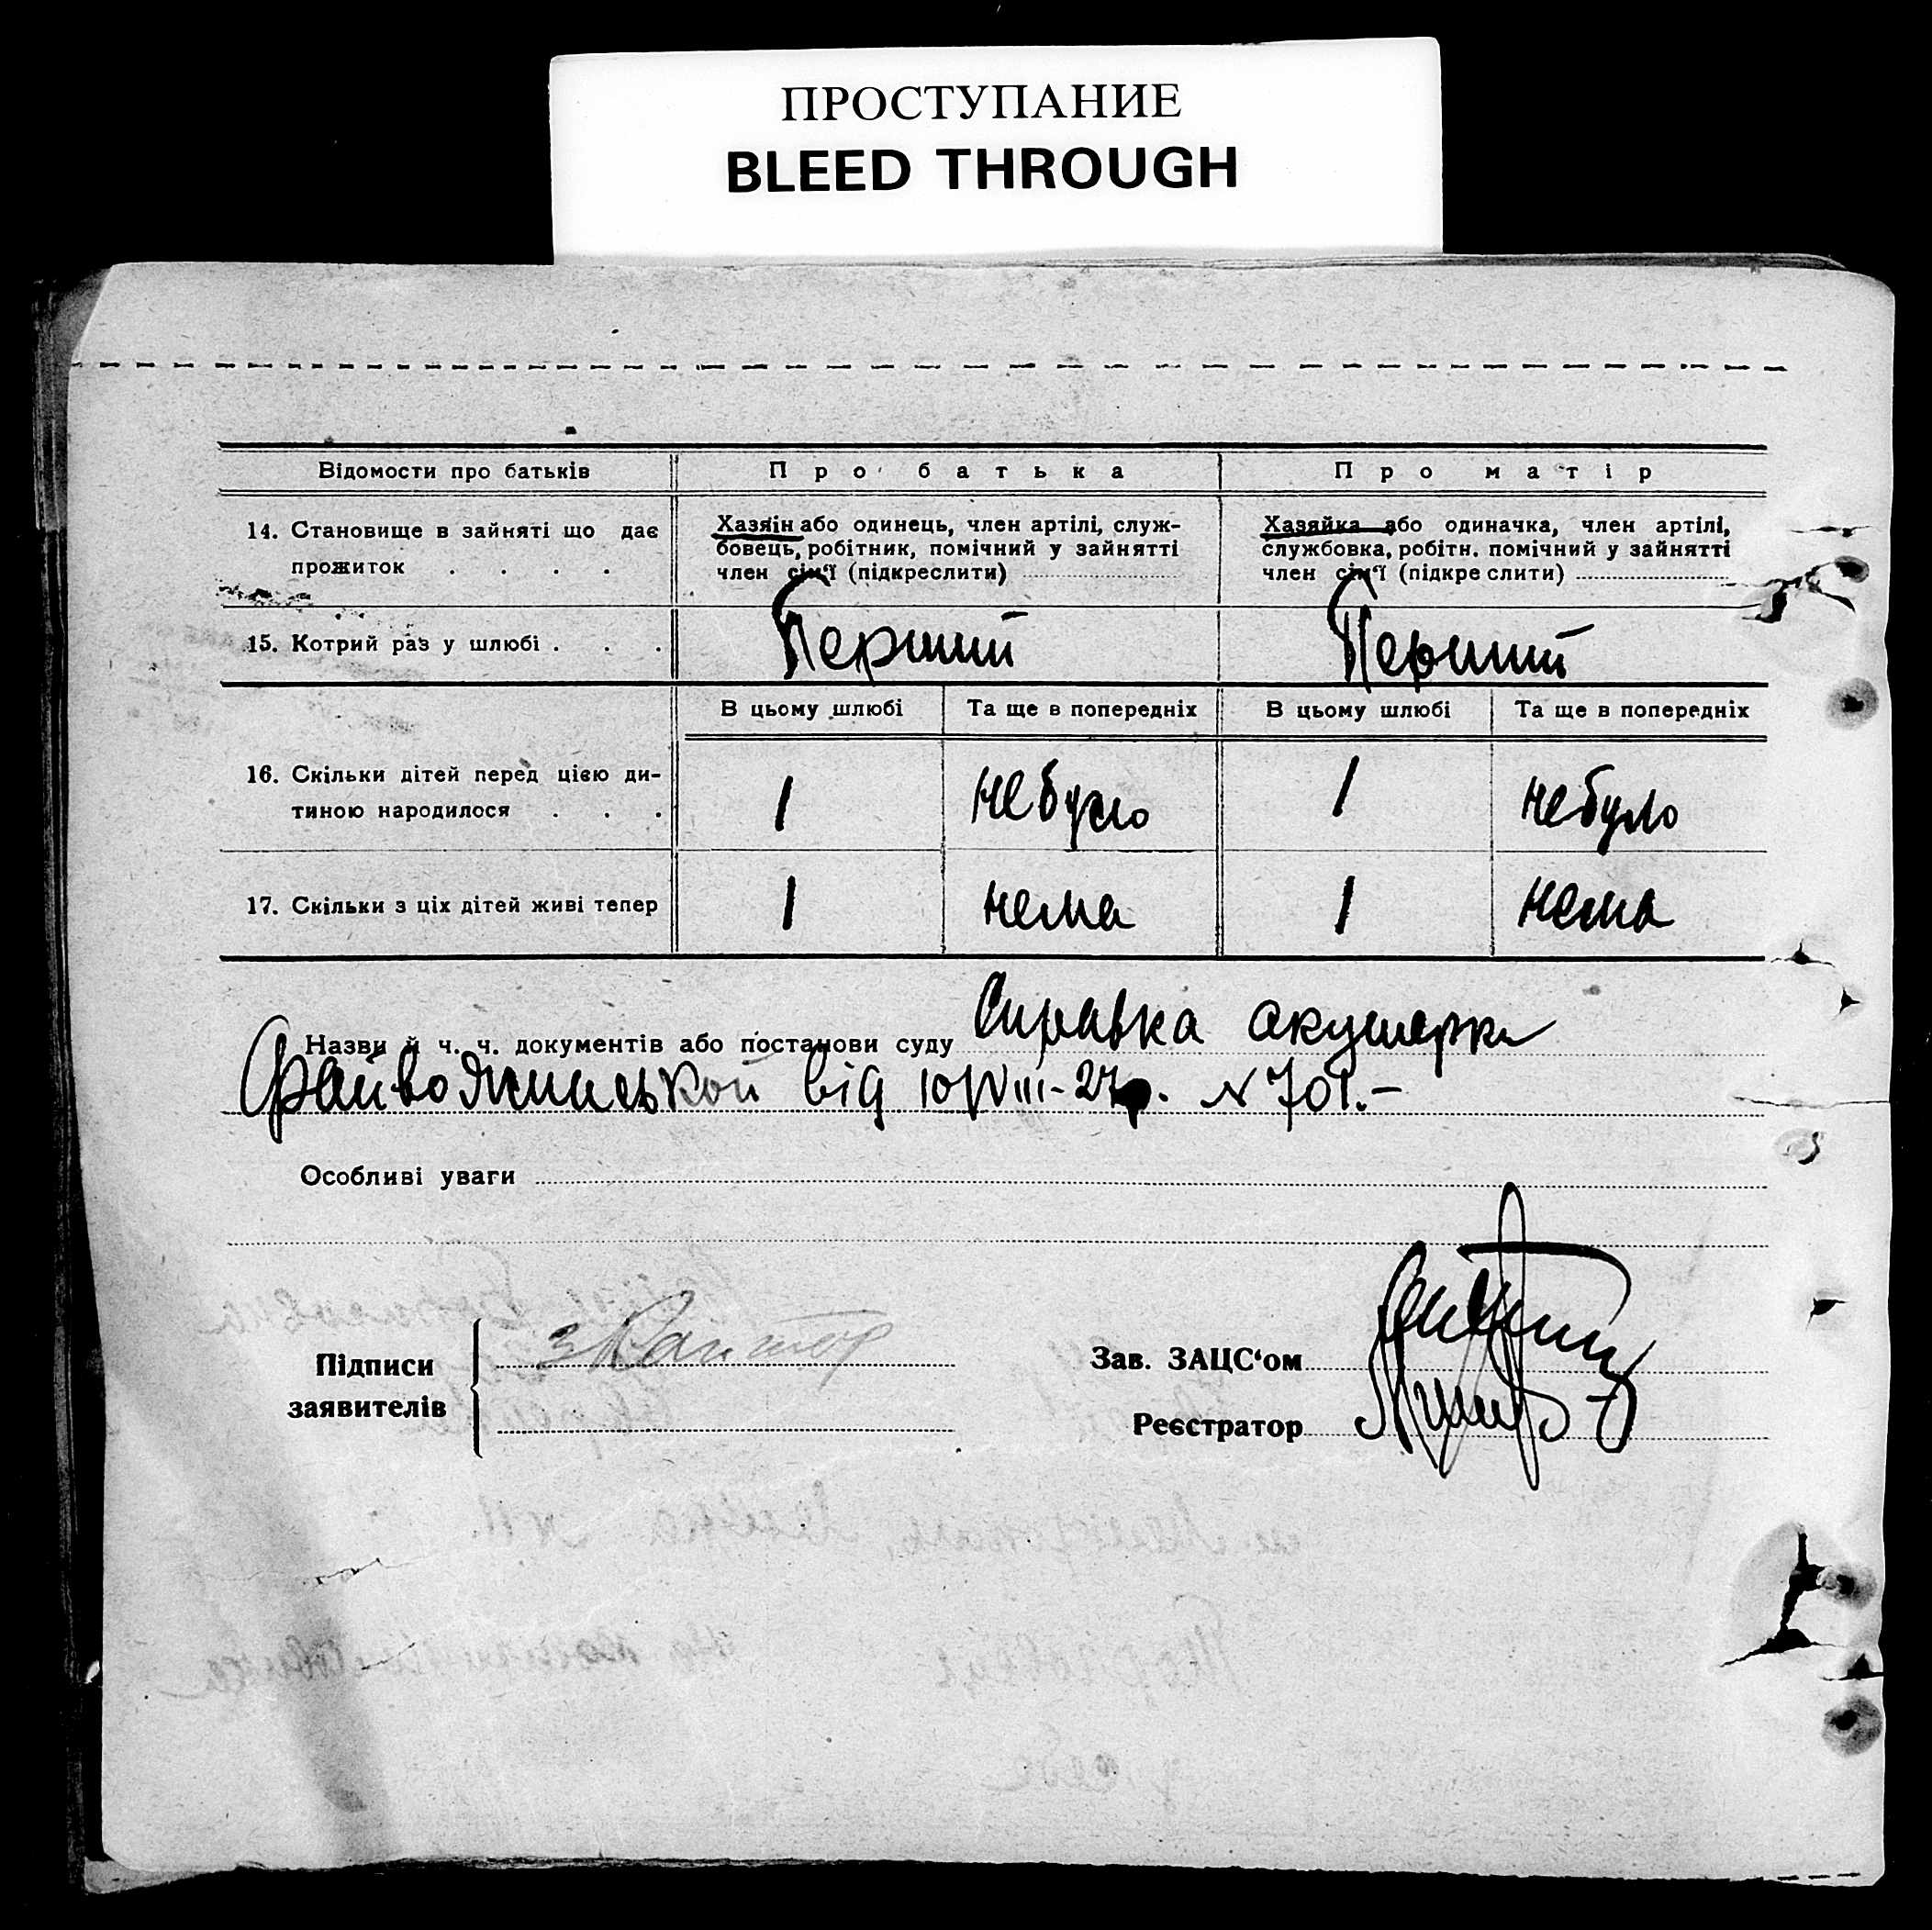 ПРОСТУПАНИЕ
BLEED THROUGH
Відомости про батьків
Про батька
Про матір
14. Становище в зайняті що дає
прожиток . . . .
Хазяїн або одинець, член артілі, служ-
бовець, робітник, помічний у зайнятті
член сім'ї (підкреслити)
Хазяйка або одиначка, член артілі,
службовка, робітн. помічний у зайнятті
член сім'ї (підкреслити)
15. Котрий раз у шлюбі . . .
Перший
Перший
В цьому шлюбі
Та ще в попередніх
В цьому шлюбі
Та ще в попередніх
16. Скільки дітей перед цією ди-
тиною народилося . . .
1
небуло
1
небуло
17. Скільки з ціх дітей живі тепер
1
нема
1
нема
Назви й ч. ч. документів або постанови суду Справка акушерки
від 10/VIII-27р. N 701.-
Особливі уваги
Підписи
заявителів
Кантор
Зав. ЗАЦС'ом
Реєстратор